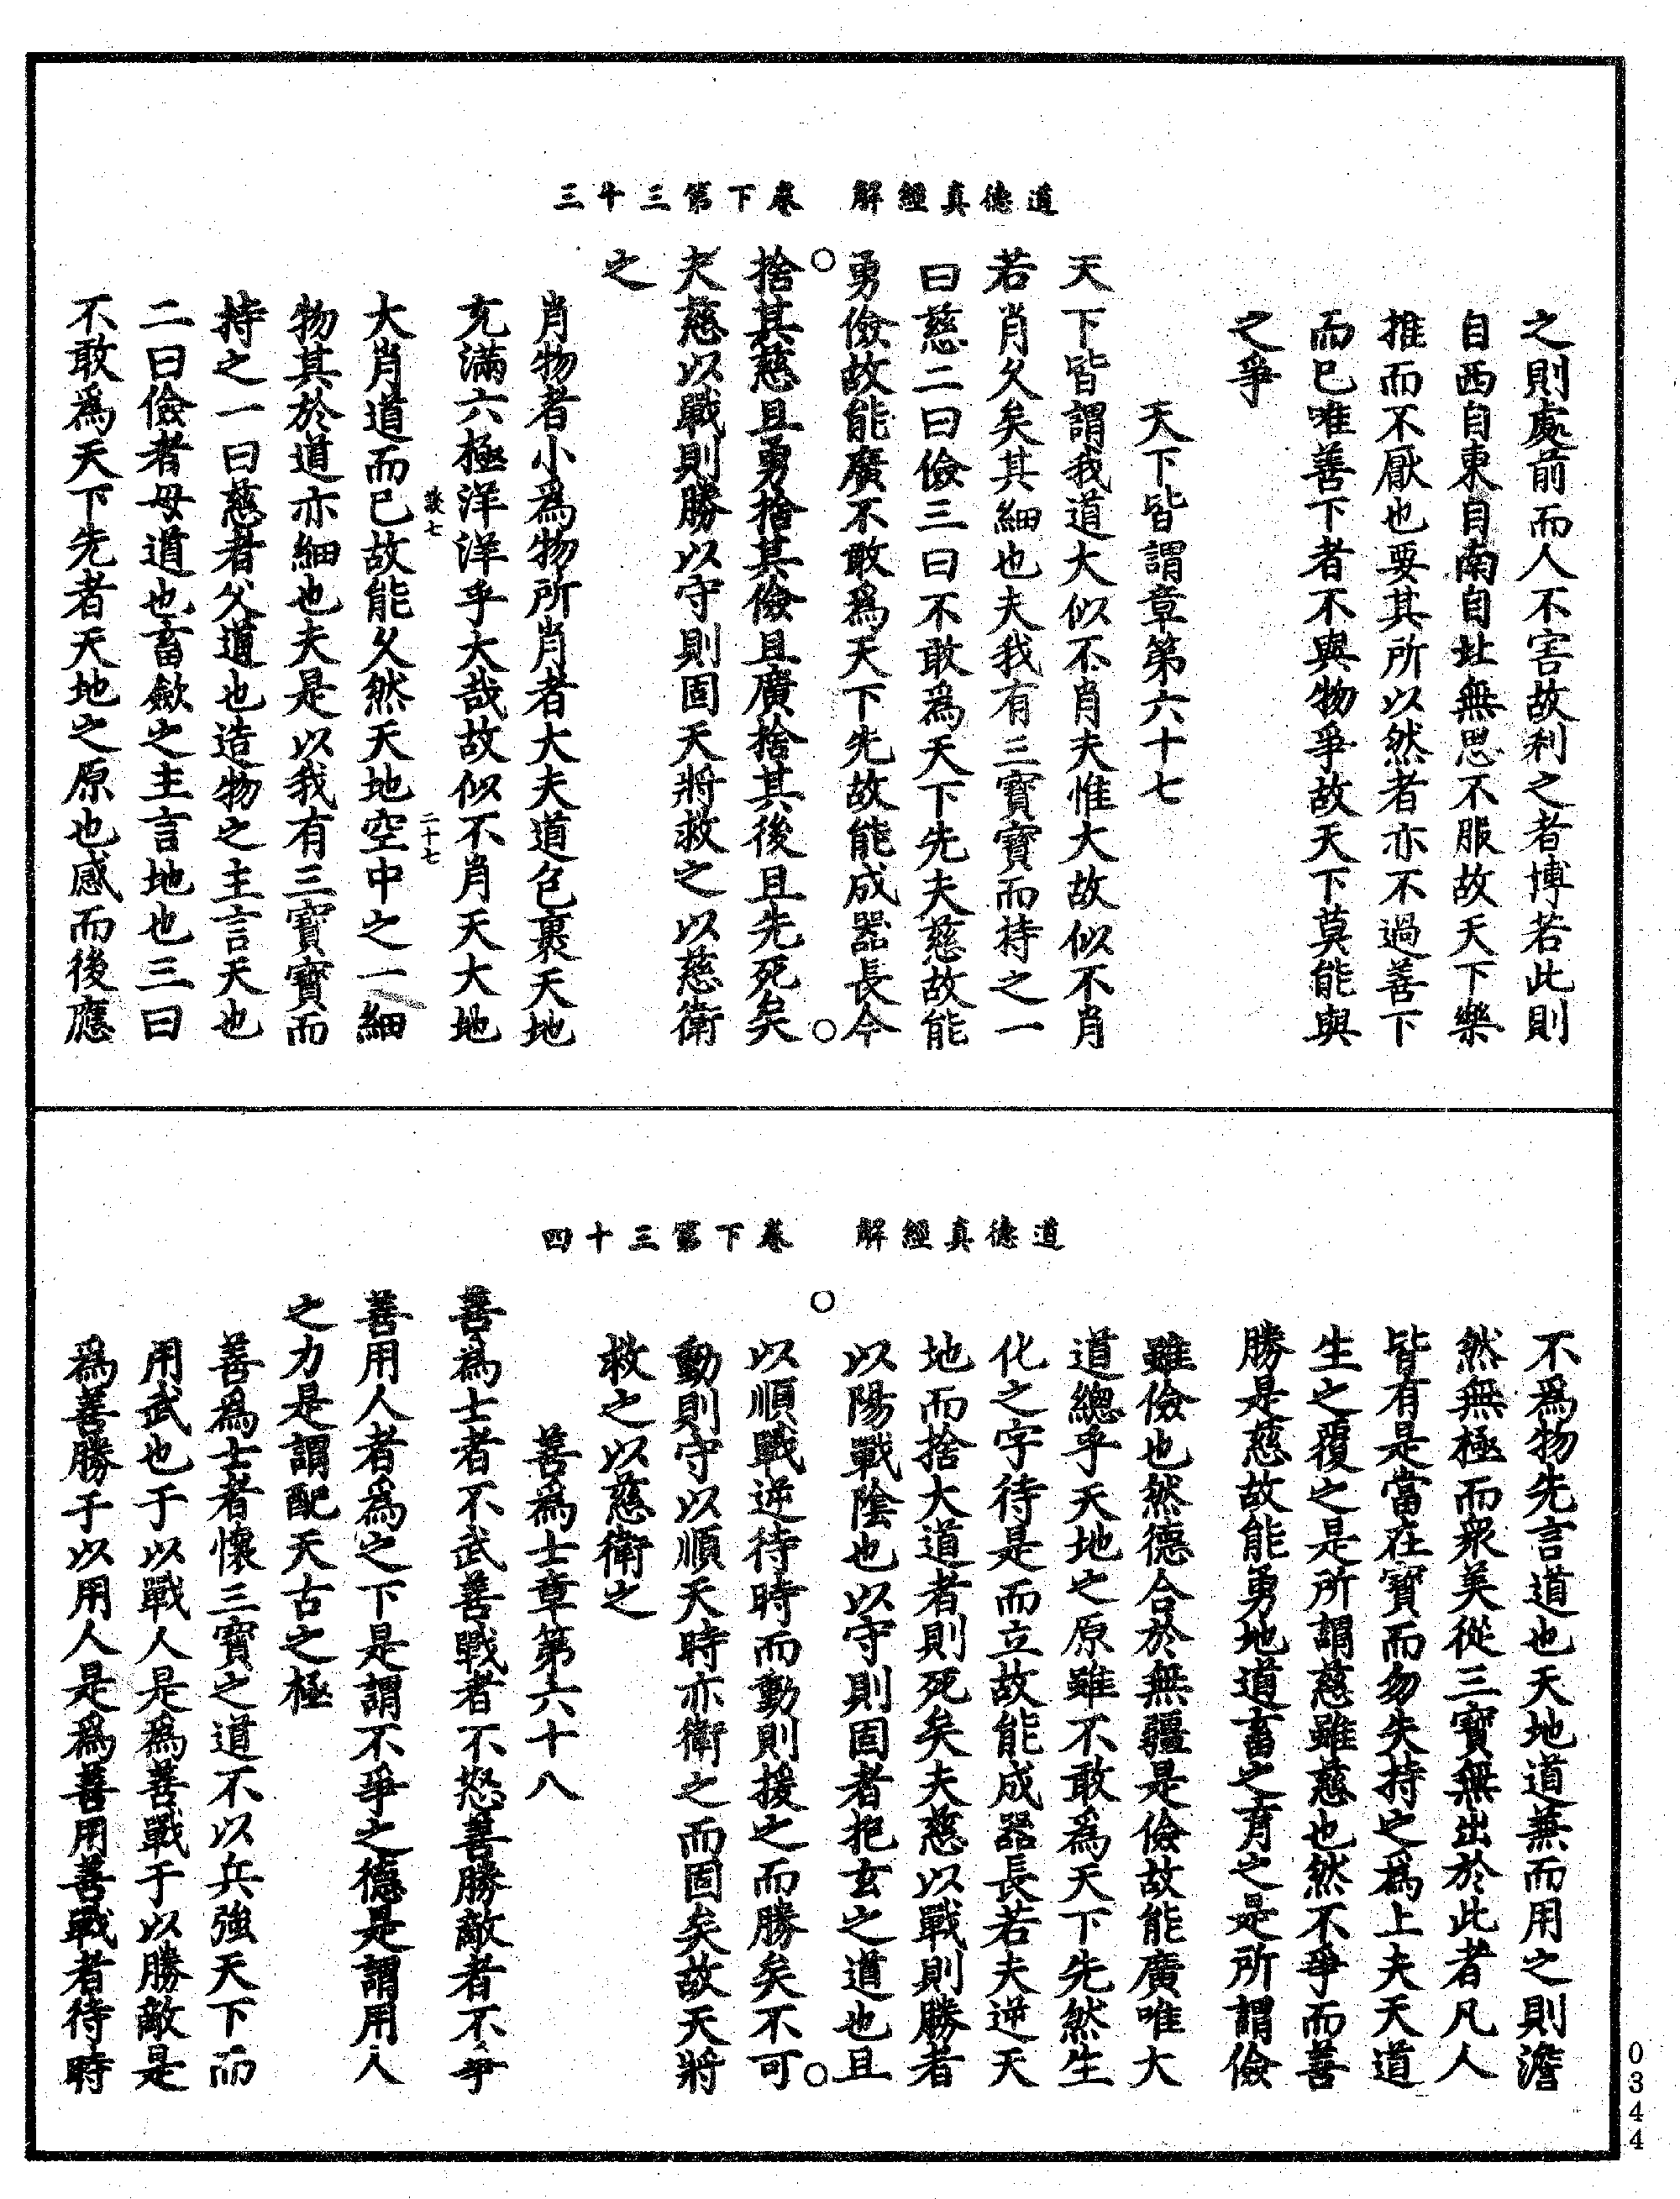 道德真經解　卷下第三十三
之則處前而人不害故利之者博若此則
自西自東自南自北無思不服故天下樂
推而不厭也要其所以然者亦不過善下
而已唯善下者不與物爭故天下莫能與
之爭
天下皆謂章第六十七
天下皆謂我道大似不肖夫惟大故似不肖
若肖久矣其細也夫我有三寶寶而持之一
曰慈二曰儉三曰不敢爲天下先夫慈故能
勇儉故能廣不敢爲天下先故能成器長今
捨其慈且勇捨其儉且廣捨其後且先死矣
夫慈以戰則勝以守則固天將救之以慈衛
之
肖物者小爲物所肖者大夫道包裹天地
充滿六極洋洋乎大哉故似不肖天大地
談七　二十七
大肖道而已故能久然天地空中之一細
物其於道亦細也夫是以我有三寶寶而
持之一曰慈者父道也造物之主言天也
二曰儉者母道也畜斂之主言地也三曰
不敢爲天下先者天地之原也感而後應
道德真經解　卷下第三十四
不爲物先言道也天地道兼而用之則澹
然無極而衆美從三寶無出於此者凡人
皆有是當在寶而勿失持之爲上夫天道
生之覆之是所謂慈雖慈也然不爭而善
勝是慈故能勇地道畜之育之是所謂儉
雖儉也然德合於無疆是儉故能廣唯大
道總乎天地之原雖不敢爲天下先然生
化之字待是而立故能成器長若夫逆天
地而捨大道者則死矣夫慈以戰則勝者
以陽戰陰也以守則固者抱玄之道也且
以順戰逆待時而動則援之而勝矣不可
動則守以順天時亦衛之而固矣故天將
救之以慈衛之
善爲士章第六十八
善爲士者不武善戰者不怒善勝敵者不爭
善用人者爲之下是謂不爭之德是謂用人
之力是謂配天古之極
善爲士者懷三寶之道不以兵強天下而
用武也于以戰人是爲善戰于以勝敵是
爲善勝于以用人是爲善用善戰者待時
0344